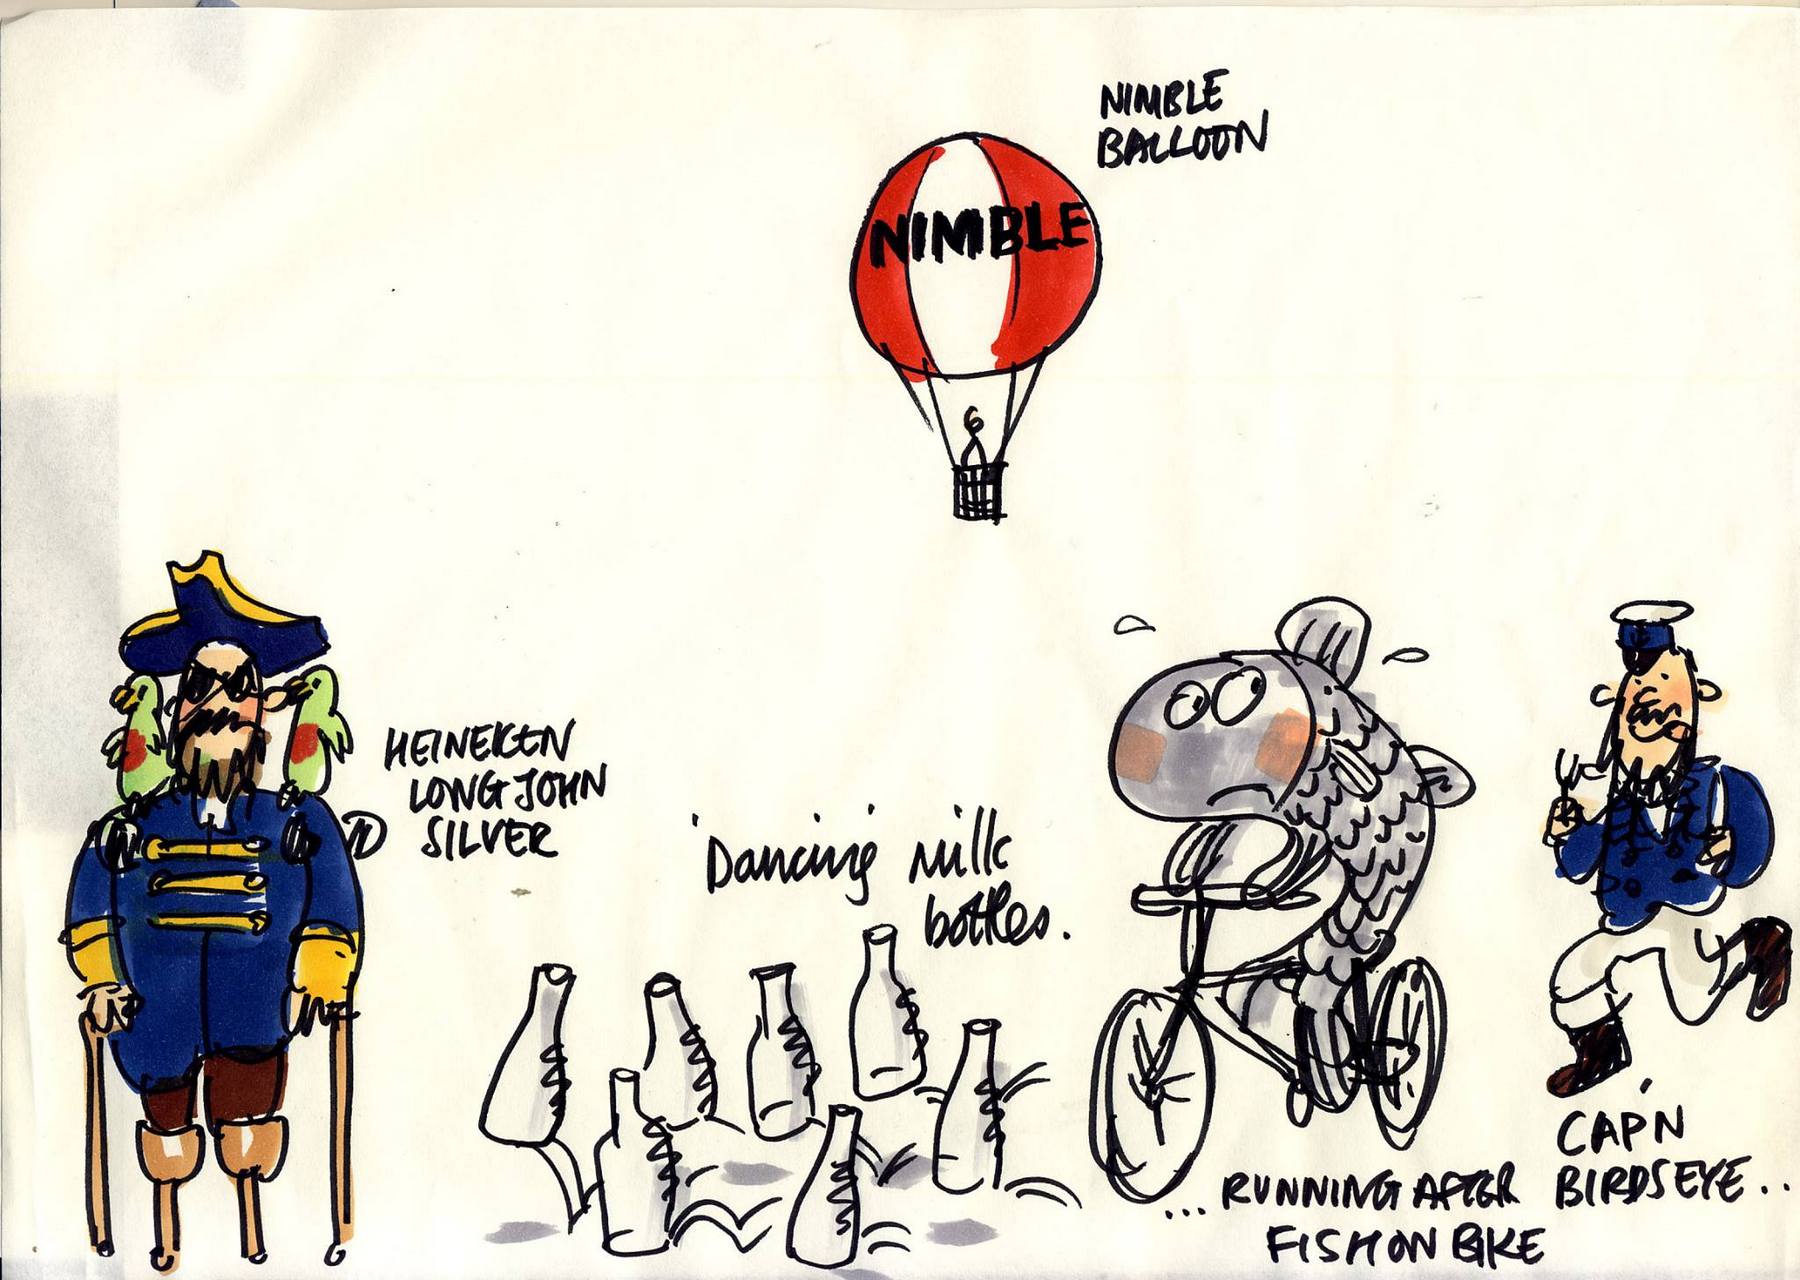 NIMBLE
BALLOON
NIMBLE
HEINEKEN
LONG JOHN
SILVER
'Dancing' milk
bottles.
CAP'N
BIRDSEYE..
...RUNNING AFTER
FISH ON BIKE